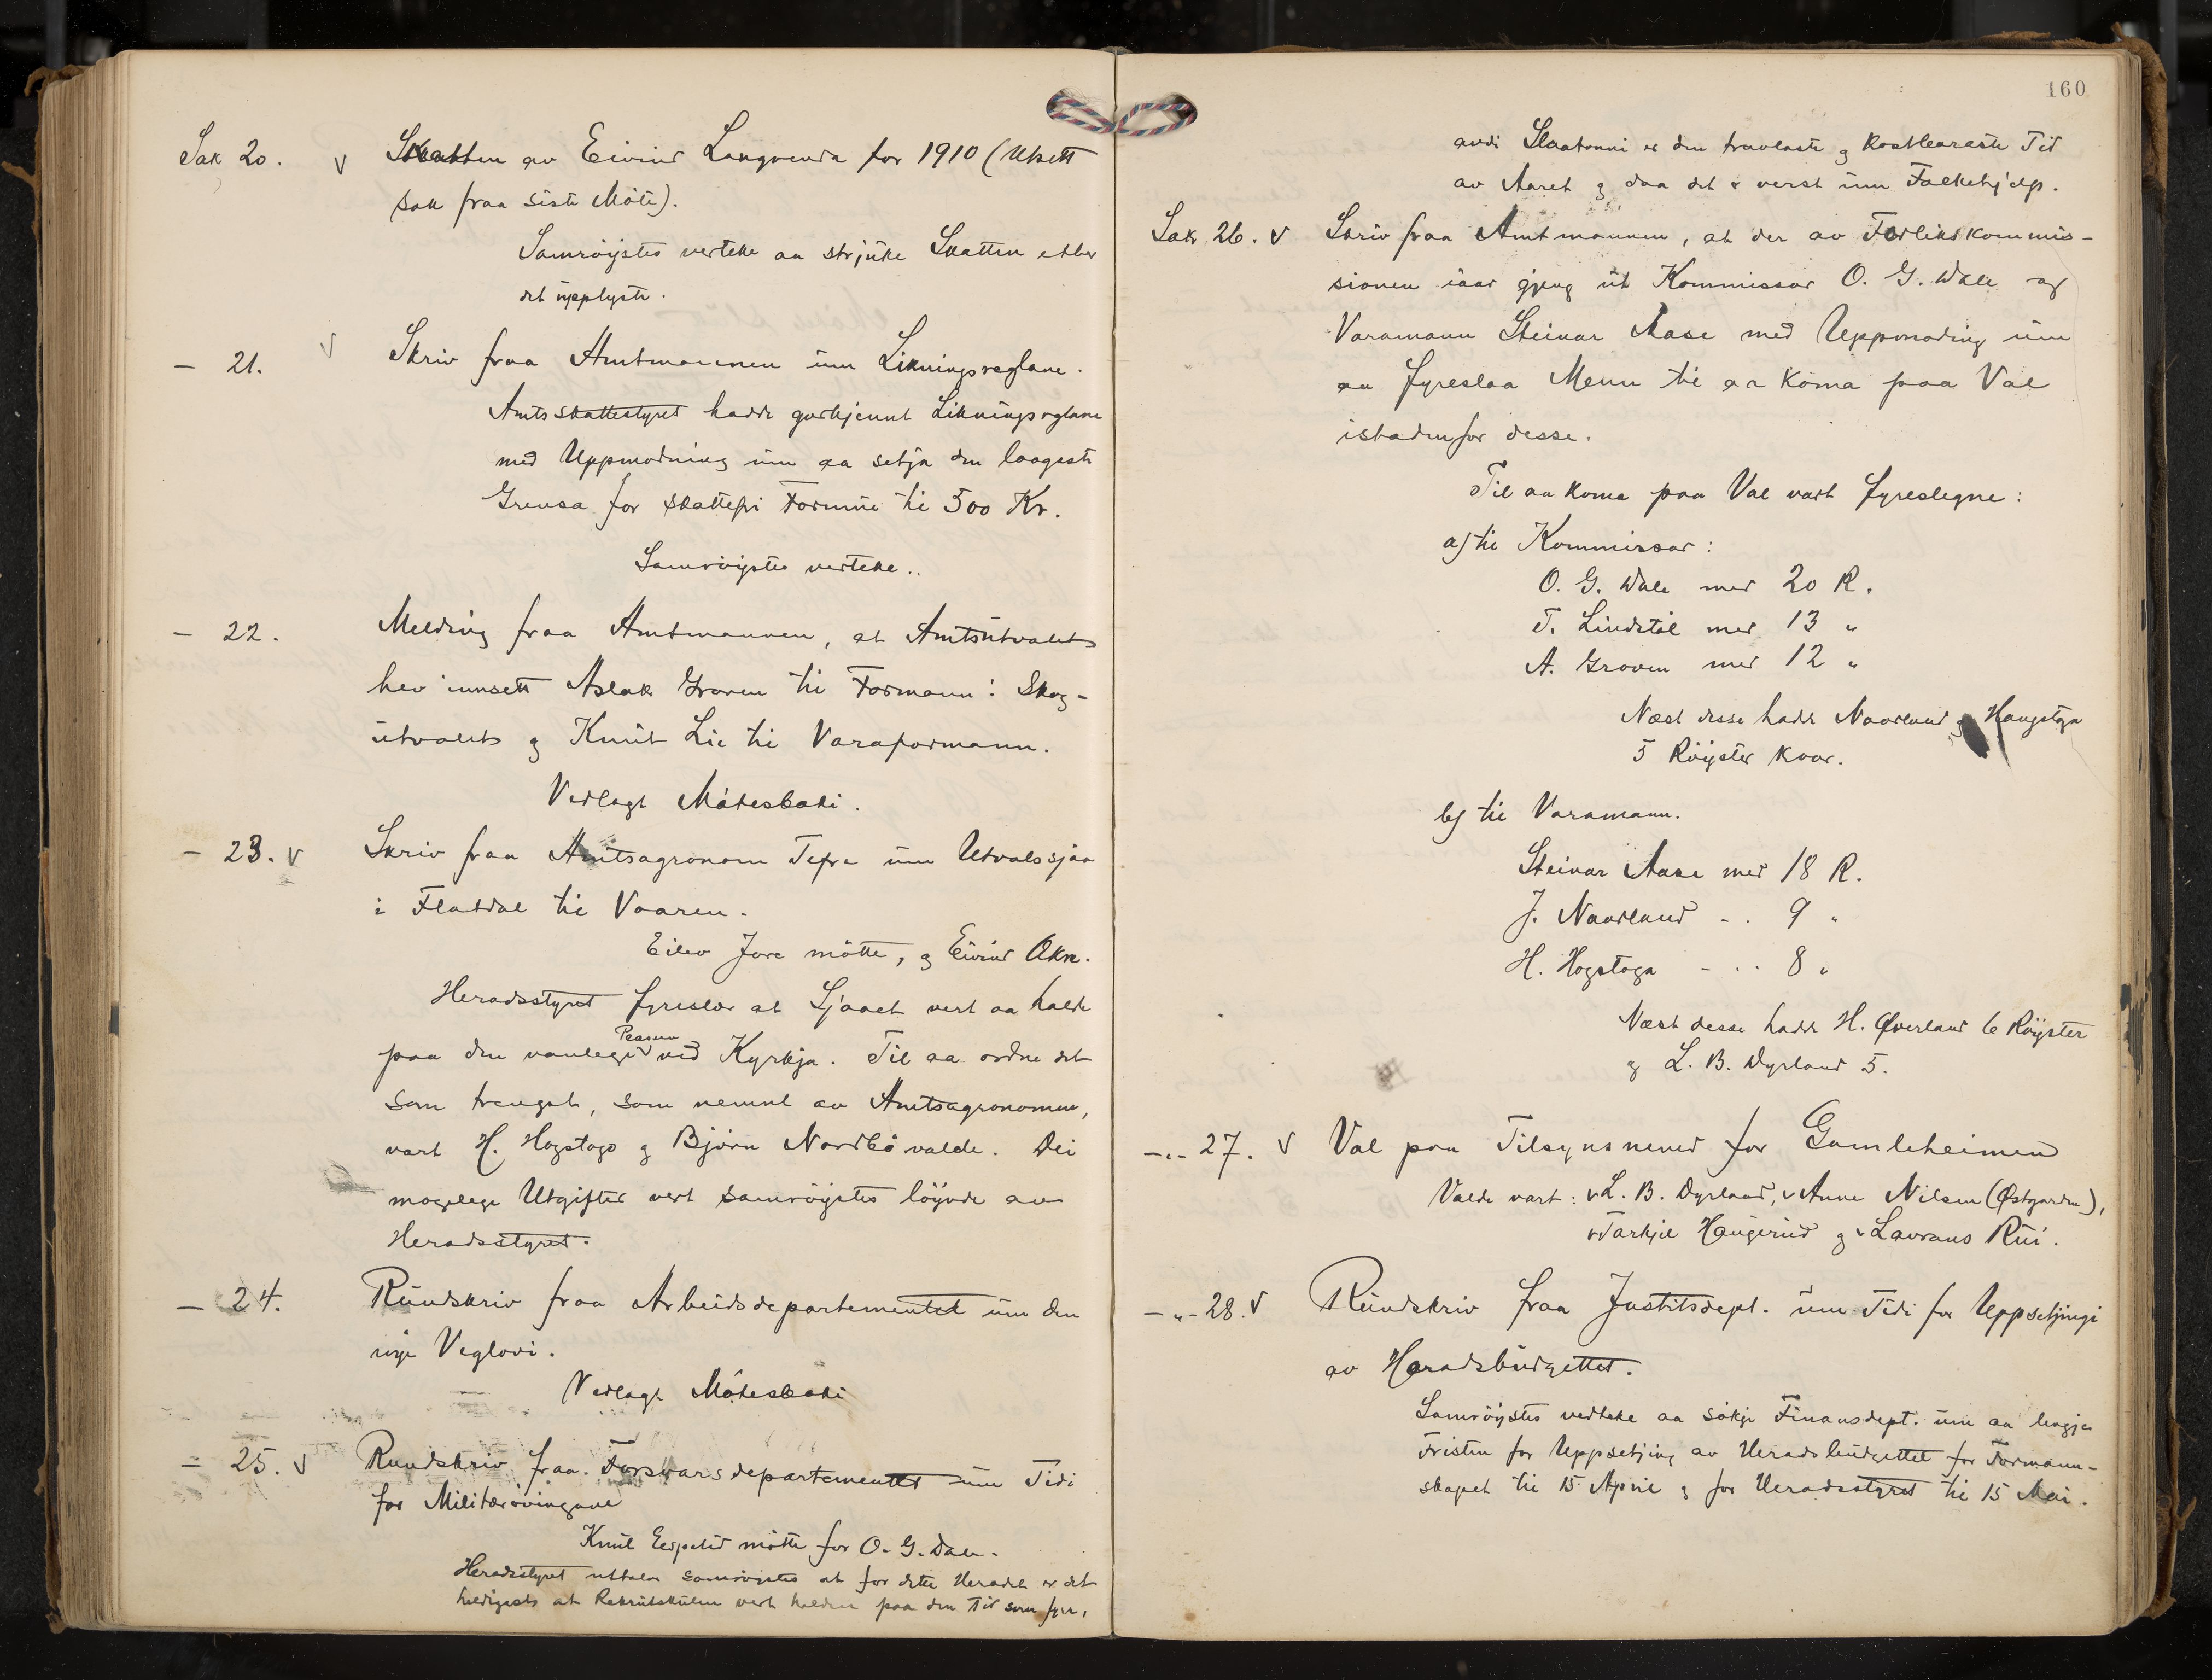 Sak 20. v Skatten av Eivind Langvenda for 1910 (Utsett
sak fraa siste Möte).
Samröystes vorteke aa strjuke Skatten etter
det upplyste.
— 21. v Skriv fraa Amtmannen um Likningsreglane.
Amtsskattestyret hadde godkjennt Likningsreglane
med Uppmodning um aa setja den laagaste
Grensa for skattefri Formue til 500 Kr.
Samröystes verteke..
— 22. Melding fraa Amtmannen, at Amtsutvalet
hev innsett Aslak Groven til Formann i Skog-
utvalet og Knut Lie til Varaformann.
Vedlagt Mötesboki.
— 23. v Skriv fraa Amtsagronom Tefre um Utvalssjaa
i Flatdal til Vaaren.
Eilev Jore mötte, og Eivind Økre.
Heradsstyret fyreslær at Sjaaet vert aa halde
paa den vanlege Plassen ved Kyrkja. Til aa ordne det
som trengst, som nemnt av Amtsagronomen,
vart H. Hogstogo og Björn Nordbö valde. Dei
mogelege Utgifter vert samröystes löyvde av
Heradsstyret.
— 24. Rundskriv fraa Arbeidsdepartementet um den
nye Veglovi.
Vedlagt Mötesboki
— 25. v Rundskriv fraa Forsvarsdepartementet um Tidi
for Militærövingane
Knut Espelid mötte for O. G. Dale.
Heradsstyret uttalar samröystes at for dette Heradet er det
heldigaste at Rekrutskulen vert halden paa den Tid som fyrr,
160
andi Slaatonni er den travlaste og kostbaraste Tid
av Aaret og daa det er verst um Folkehjelp.
Sak 26. v Skriv fraa Amtmannen, at der av Forlikskommis-
sionen iaar gjeng ut Kommissar O. G. Dale og
Varamann Steinar Aase med Uppmoding um
aa fyreslaa Menn til aa koma paa Val
istadenfor desse.
Til aa koma paa Val vart fyreslegne:
a) til Kommissar:
O. G. Dale med 20 R.
T. Lindstöl med 13 "
A. Groven med 12 "
Næst desse hadde Naordland og Haugstoga
5 Röyster kvar.
b) til Varamann.
Steinar Aase med 18 R.
J. Naordland - . 9 "
H. Hogstoga - . . 8 "
Næst desse hadde H. Øverland 6 Röyster
og L. B. Dyrland 5.
—"— 27. v Val paa Tilsynsnemd for Gamleheimen
Valde vart: v L. B. Dyrland, v Anne Nilsen (Østgarden),
v Tarkjil Haugerud og v Lavrans Rui.
—"— 28. v Rundskriv fraa Justitsdept. um Tidi for Uppsetjingi
av Heradsbudgettet.
Samröystes vedteke aa sökje Finansdept. um aa lengje
Fristen for Uppsetjing av Heradsbudgettet for Formann-
skapet til 15 April og for Heradsstyret til 15 Mai.